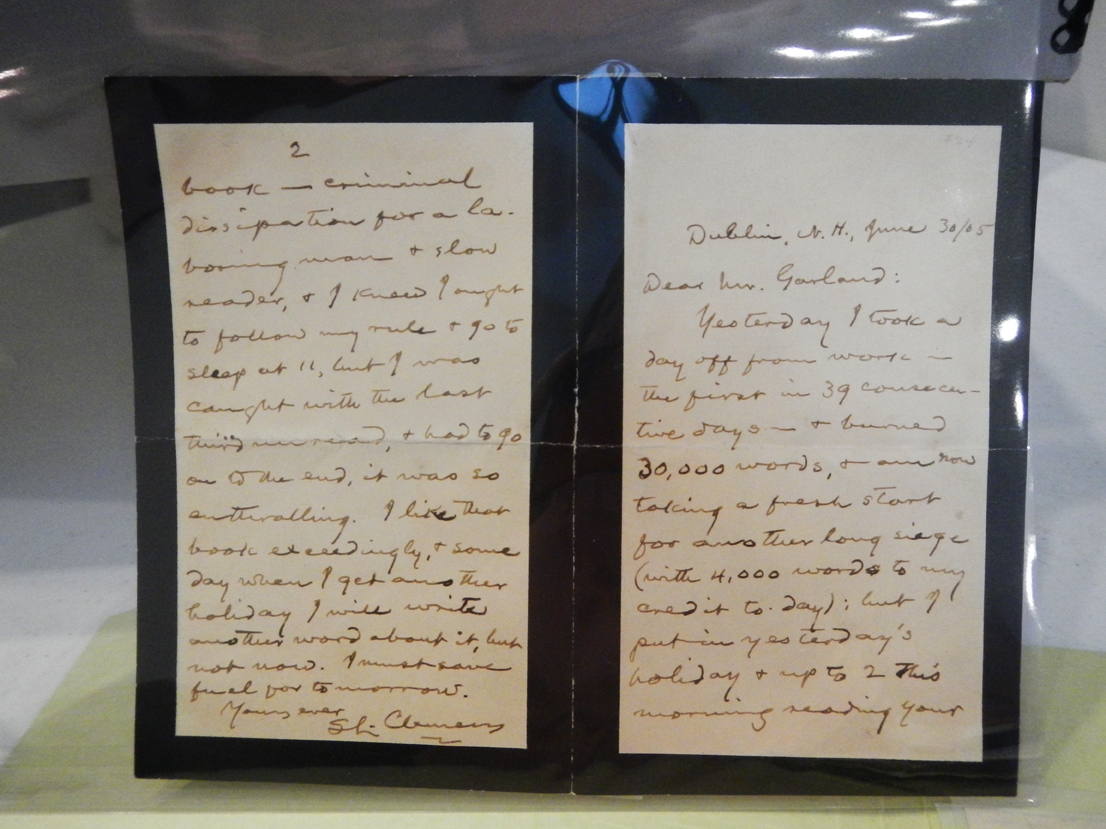 Dublin, N.H., June 30/05
Dear Mr. Garland:
Yesterday I took a
day off from work —
the first in 39 consecu-
tive days — & burned
30,000 words, & am now
taking a fresh start
for another long siege
(with 4,000 words to my
credit to-day); but I
put in yesterday's
holiday & up to 2 this
morning reading your
2
book — criminal
dissipation for a la-
boring man & slow
reader, & I knew I ought
to follow my rule & go to
sleep at 11, but I was
caught with the last
third unread, & had to go
on to the end, it was so
enthralling. I like that
book exceedingly, & some
day when I get another
holiday I will write
another word about it, but
not now. I must save
fuel for tomorrow.
Yours ever
SL. Clemens